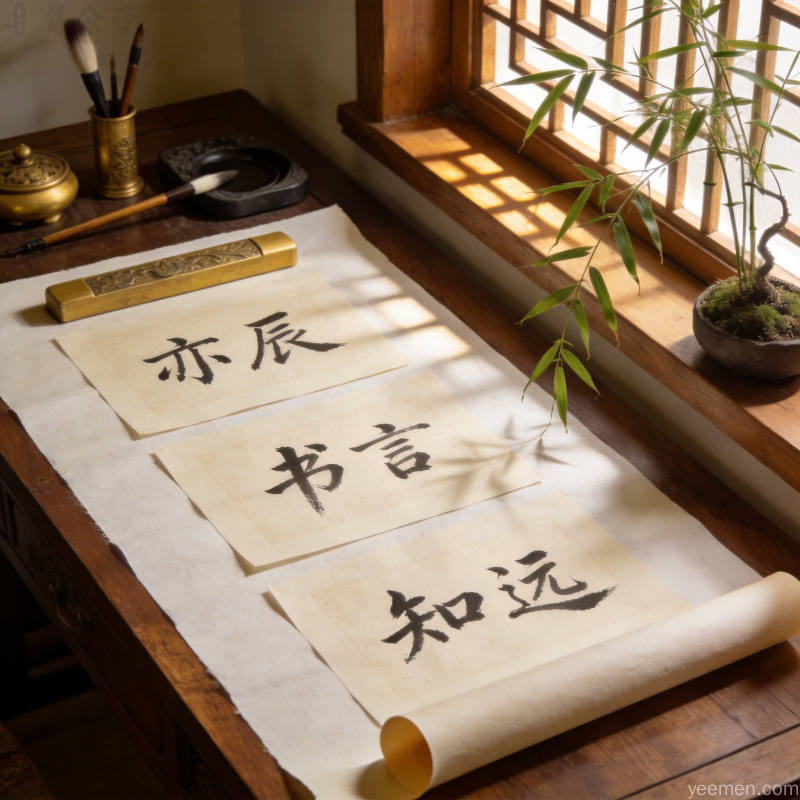 亦辰
书言
知远
yeemen.com